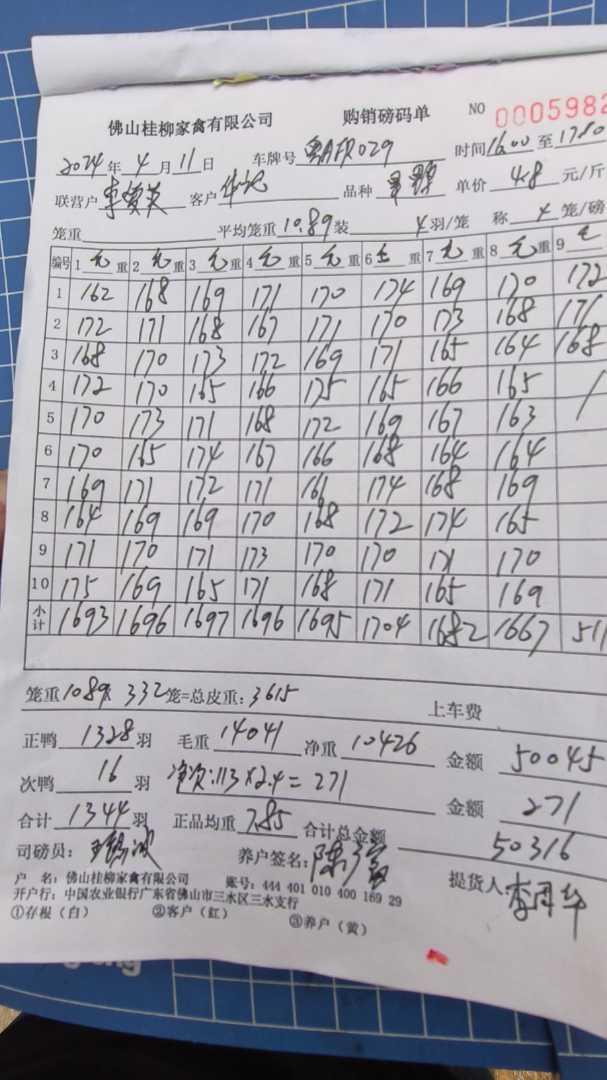 佛山桂柳家禽有限公司 购销磅码单 NO 0005982
2024年4月11日 车牌号 029 时间16.00至17.80
联营户 李爱英 客户 品种 单价 4.8 元/斤
笼重 平均笼重10.89装 4羽/笼 称 4笼/磅
编号 1毛重 2毛重 3毛重 4毛重 5毛重 6毛重 7毛重 8毛重 9毛
1 162 168 169 171 170 174 169 170 172
2 172 171 168 167 171 170 173 168 171
3 168 170 173 172 169 171 165 164 168
4 172 170 165 166 175 165 166 165 /
5 170 173 171 168 172 169 167 163
6 170 165 174 167 166 168 164 164
7 169 171 172 171 161 174 168 169
8 164 169 169 170 168 172 174 165
9 171 170 171 173 170 170 171 170
10 175 169 165 171 168 171 165 169
小计 1693 1696 1697 1696 1695 1704 1682 1667 511
笼重1089x 332笼=总皮重:3615 上车费
正鸭 1328 羽 毛重 14041 净重 10426 金额 50045
次鸭 16 羽 净次:113×2.4=271 金额 271
合计 1344 羽 正品均重 7.85 合计总金额 50316
司磅员: 养户签名: 陈 提货人: 李国华
户 名:佛山桂柳家禽有限公司 账号:444 401 010 400 169 29
开户行:中国农业银行广东省佛山市三水区三水支行
①存根(白) ②客户(红) ③养户(黄)